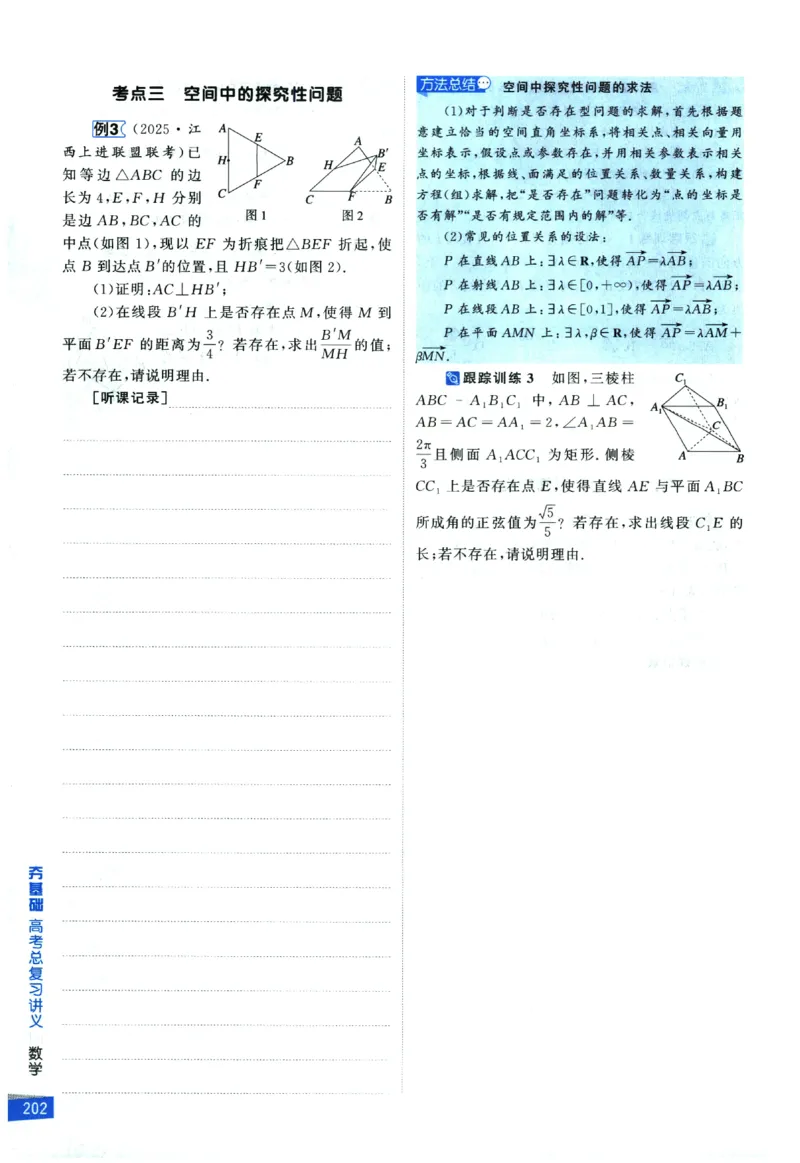 考点三 空间中的探究性问题
例3 (2025·江
西上进联盟联考)已
知等边△ABC 的边
长为4,E,F,H 分别
是边 AB,BC,AC 的
中点(如图1),现以 EF 为折痕把△BEF 折起,使
点 B 到达点B′的位置,且 HB′=3(如图2).
A
E
H
B
F
C
图1
A
B′
H
E
C
F
B
图2
(1)证明:AC⊥HB′;
(2)在线段 B′H 上是否存在点M,使得 M 到
平面B′EF 的距离为3/4?若存在,求出B′M/MH的值;
若不存在,请说明理由.
[听课记录]
方法总结 空间中探究性问题的求法
(1)对于判断是否存在型问题的求解,首先根据题
意建立恰当的空间直角坐标系,将相关点、相关向量用
坐标表示,假设点或参数存在,并用相关参数表示相关
点的坐标,根据线、面满足的位置关系、数量关系,构建
方程(组)求解,把“是否存在”问题转化为“点的坐标是
否有解”“是否有规定范围内的解”等.
(2)常见的位置关系的设法:
P 在直线AB上:∃λ∈R,使得 AP→=λAB→;
P 在射线AB上:∃λ∈[0,+∞),使得 AP→=λAB→;
P 在线段AB上:∃λ∈[0,1],使得 AP→=λAB→;
P 在平面AMN 上:∃λ,β∈R,使得 AP→=λAM→+
βMN→.
跟踪训练3 如图,三棱柱
ABC-A₁B₁C₁ 中,AB⊥AC,
AB=AC=AA₁=2,∠A₁AB=
2π/3且侧面 A₁ACC₁ 为矩形.侧棱
C₁
A₁
B₁
C
A
B
CC₁ 上是否存在点E,使得直线 AE 与平面A₁BC
所成角的正弦值为√5/5?若存在,求出线段 C₁E 的
长;若不存在,请说明理由.
夯基础 高考总复习讲义 数学
202